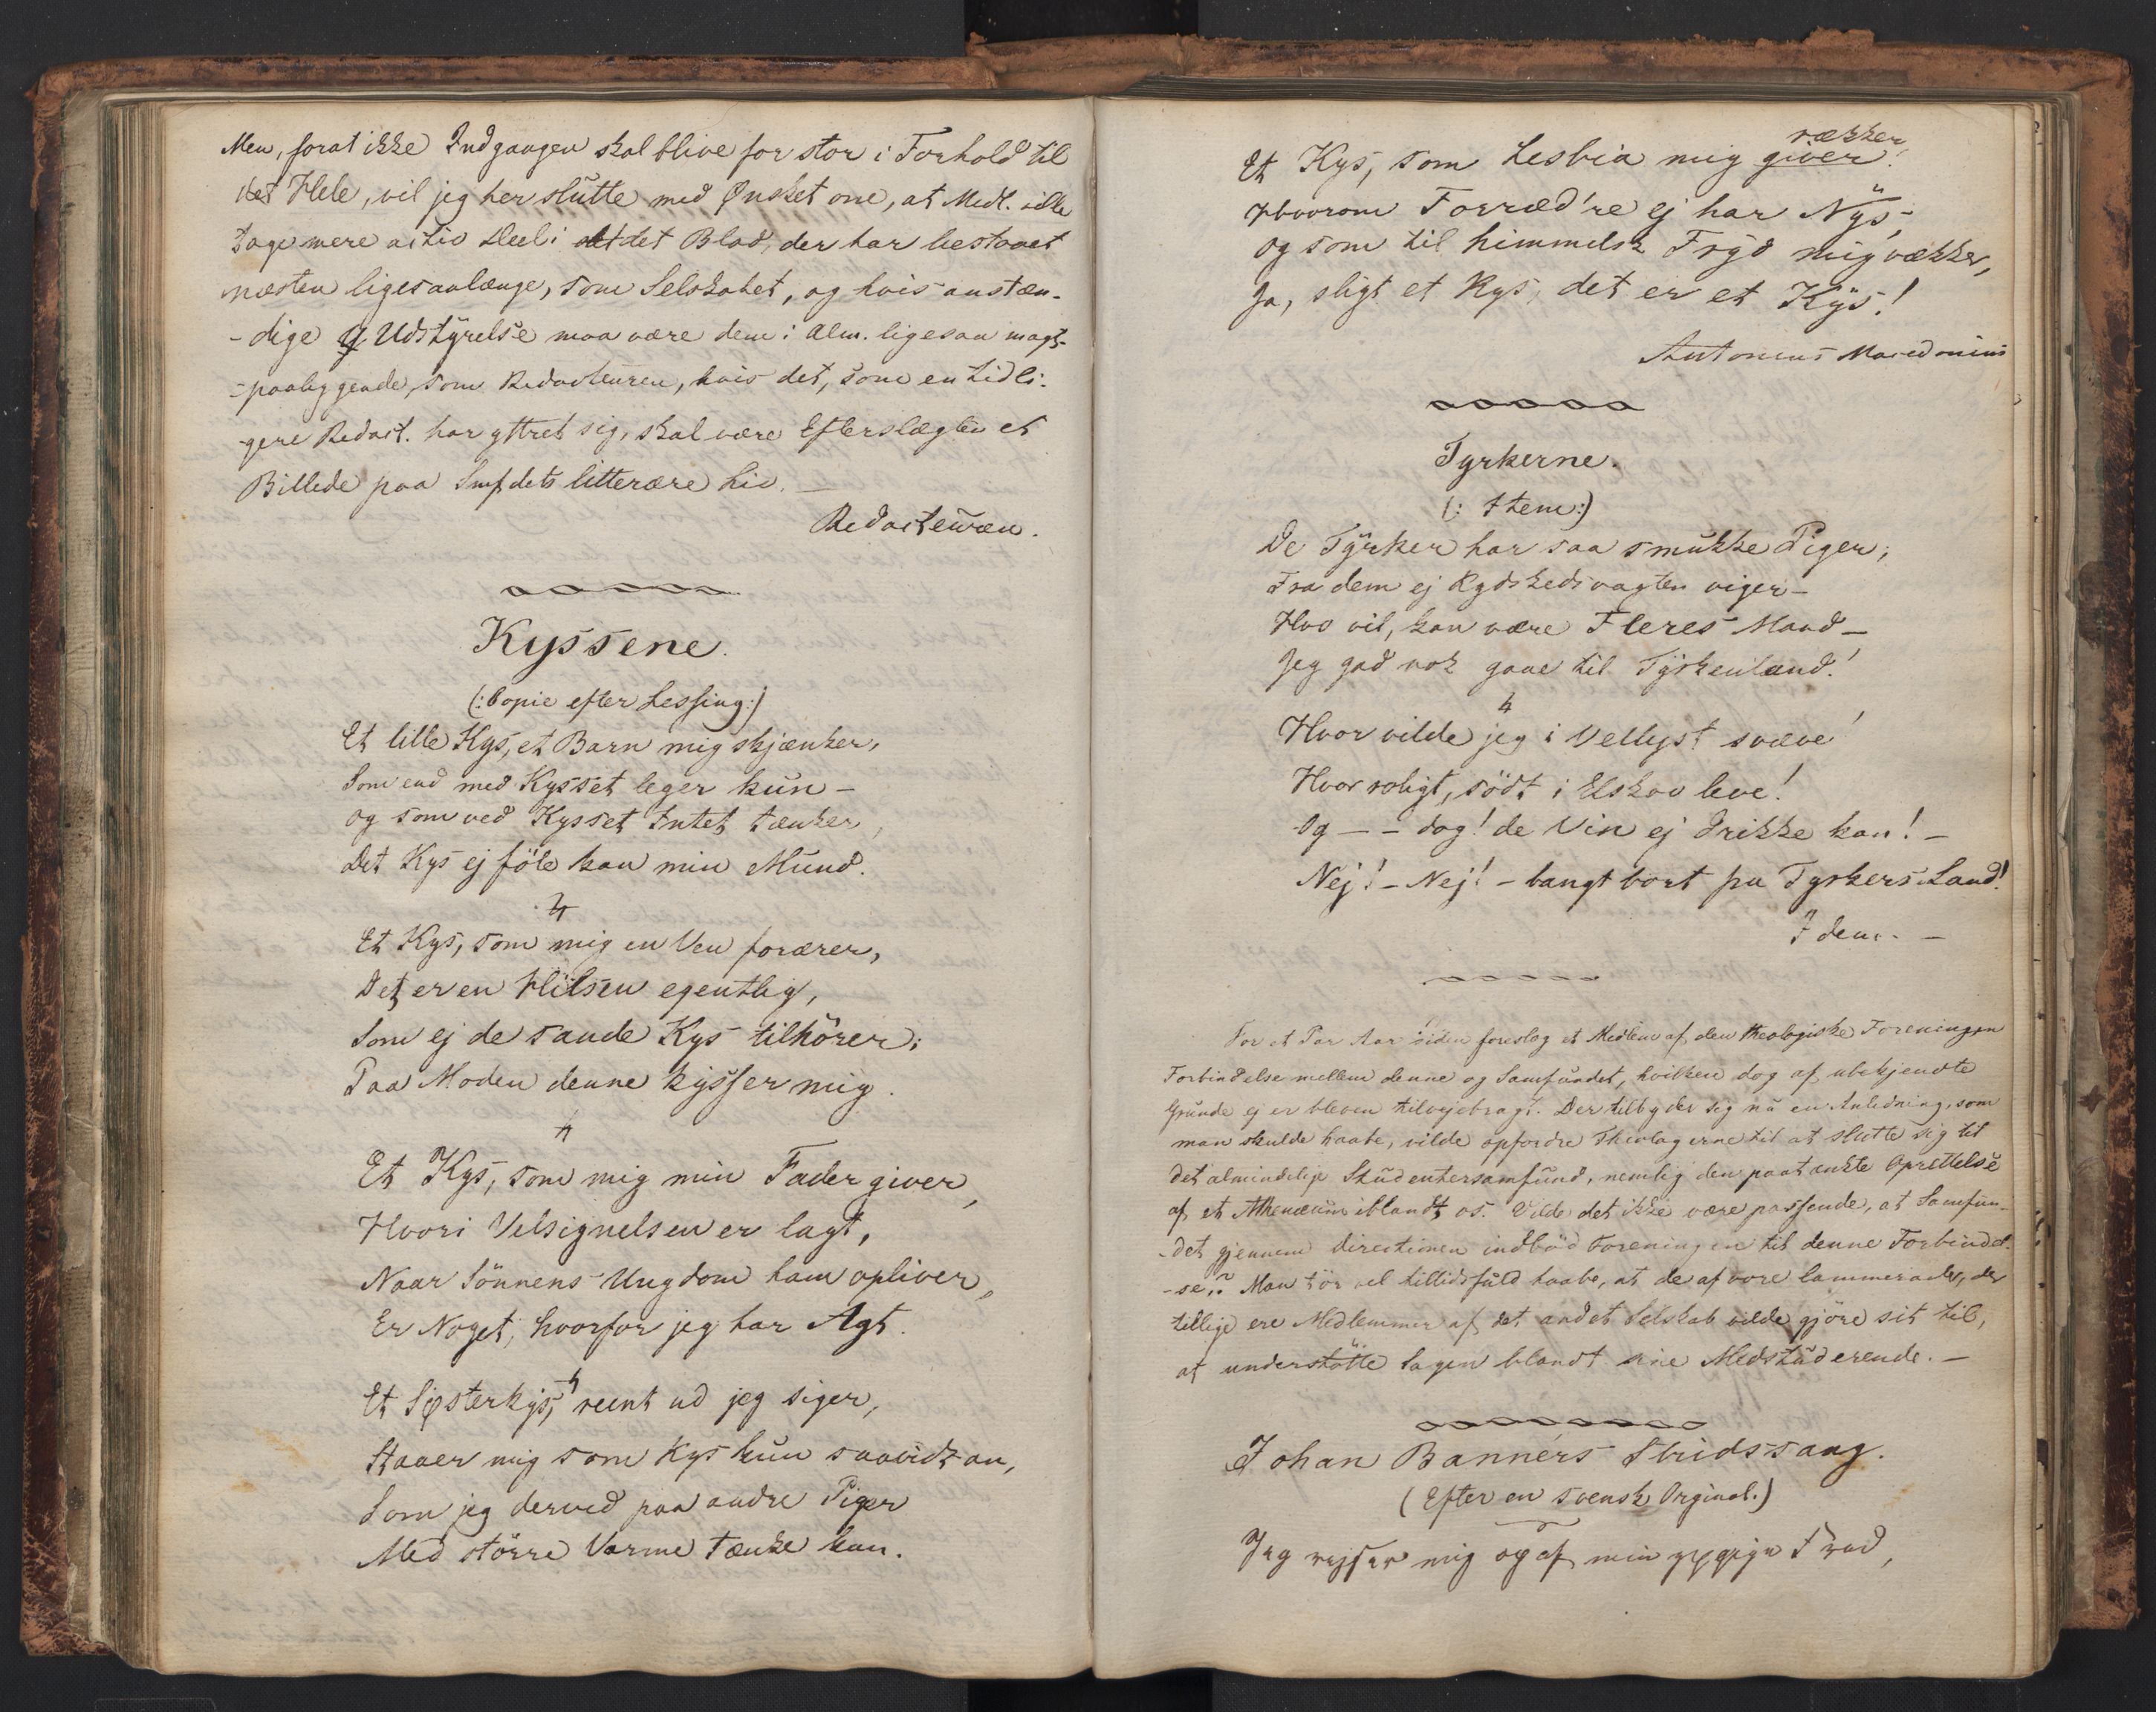 Men, forat ikke Indgangen skal blive for stor i Forhold til
det Hele, vil jeg her slutte med Ønsket om, at Medl. ville
tage mere activ Deel i det Blad, der har bestaaet
næsten ligesaalænge, som Selskabet, og hvis anstæn-
-dige Udstyrelse maa være dem i Alm. ligesaa magt-
-paaliggende, som Redacteuren, hvis det, som en tidli-
-gere Redact. har yttret sig, skal være Efterslægten et
Billede paa Smfdets litterære Liv. —
Redacteuren.
Kyssene.
(: Copie efter Lessing :)
Et lille Kys, et Barn mig skjænker,
Som end med Kysset leger kun —
og som ved Kysset Intet tænker,
Det Kys ej föle kan min Mund.
Et Kys, som mig en Ven forærer,
Det er en Hilsen egentlig,
Som ej de sande Kys tilhörer;
Paa Moden denne kysser mig.
Et Kys, som mig min Fader giver,
Hvori Velsignelsen er lagt,
Naar Sönnens Ungdom ham opliver,
Er Noget, hvorfor jeg har Agt.
Et Søsterkys, reent ud jeg siger,
Staaer mig som Kys kun saavidt an,
Som jeg derved paa andre Piger
Med större Varme tænke kan.
rækker
Et Kys, som Lesbia mig giver!
Hvorom Forræd're ej har Nys,
og som til himmelsk Fryd mig vækker,
Ja, sligt et Kys, det er et Kys!
Antonius Macedonius
Tyrkerne.
(: Item :)
De Tyrker har saa smukke Piger;
Fra dem ej Kydskedsvagten viger —
Hvo vil, kan være Fleres Mand —
Jeg gad nok gaae til Tyrkenland!
Hvor vilde jeg i Vellyst svæve!
Hvor roligt, södt i Elskov leve!
Og — — dog! de Vin ej drikke kan! —
Nej! — Nej! — langt bort fra Tyrkers Land!
Idem. —
For et Par Aar siden foreslog et Medlem af den theologiske Foreningen
Forbindelse mellem denne og Samfundet, hvilken dog af ubekjendte
Grunde ej er bleven tilvejebragt. Der tilbyder sig nu en Anledning, som
man skulde haabe, vilde opfordre Theologerne til at slutte sig til
det almindelige Studentersamfund, nemlig den paatænkte Oprettelse
af et Athenæum iblandt os. Vilde det ikke være passende, at Samfun-
-det gjennem Directionen indböd Foreningen til denne Forbindel-
-se? Man tör vel tillidsfuld haabe, at de af vore Cammerader, der
tillige ere Medlemmer af det andet Selskab vilde gjöre sit til,
at understötte Sagen blandt sine Medstuderende. —
Johan Bannérs Stridssang.
(Efter en svensk Orginal.)
Jeg rejser mig op af min Frad,